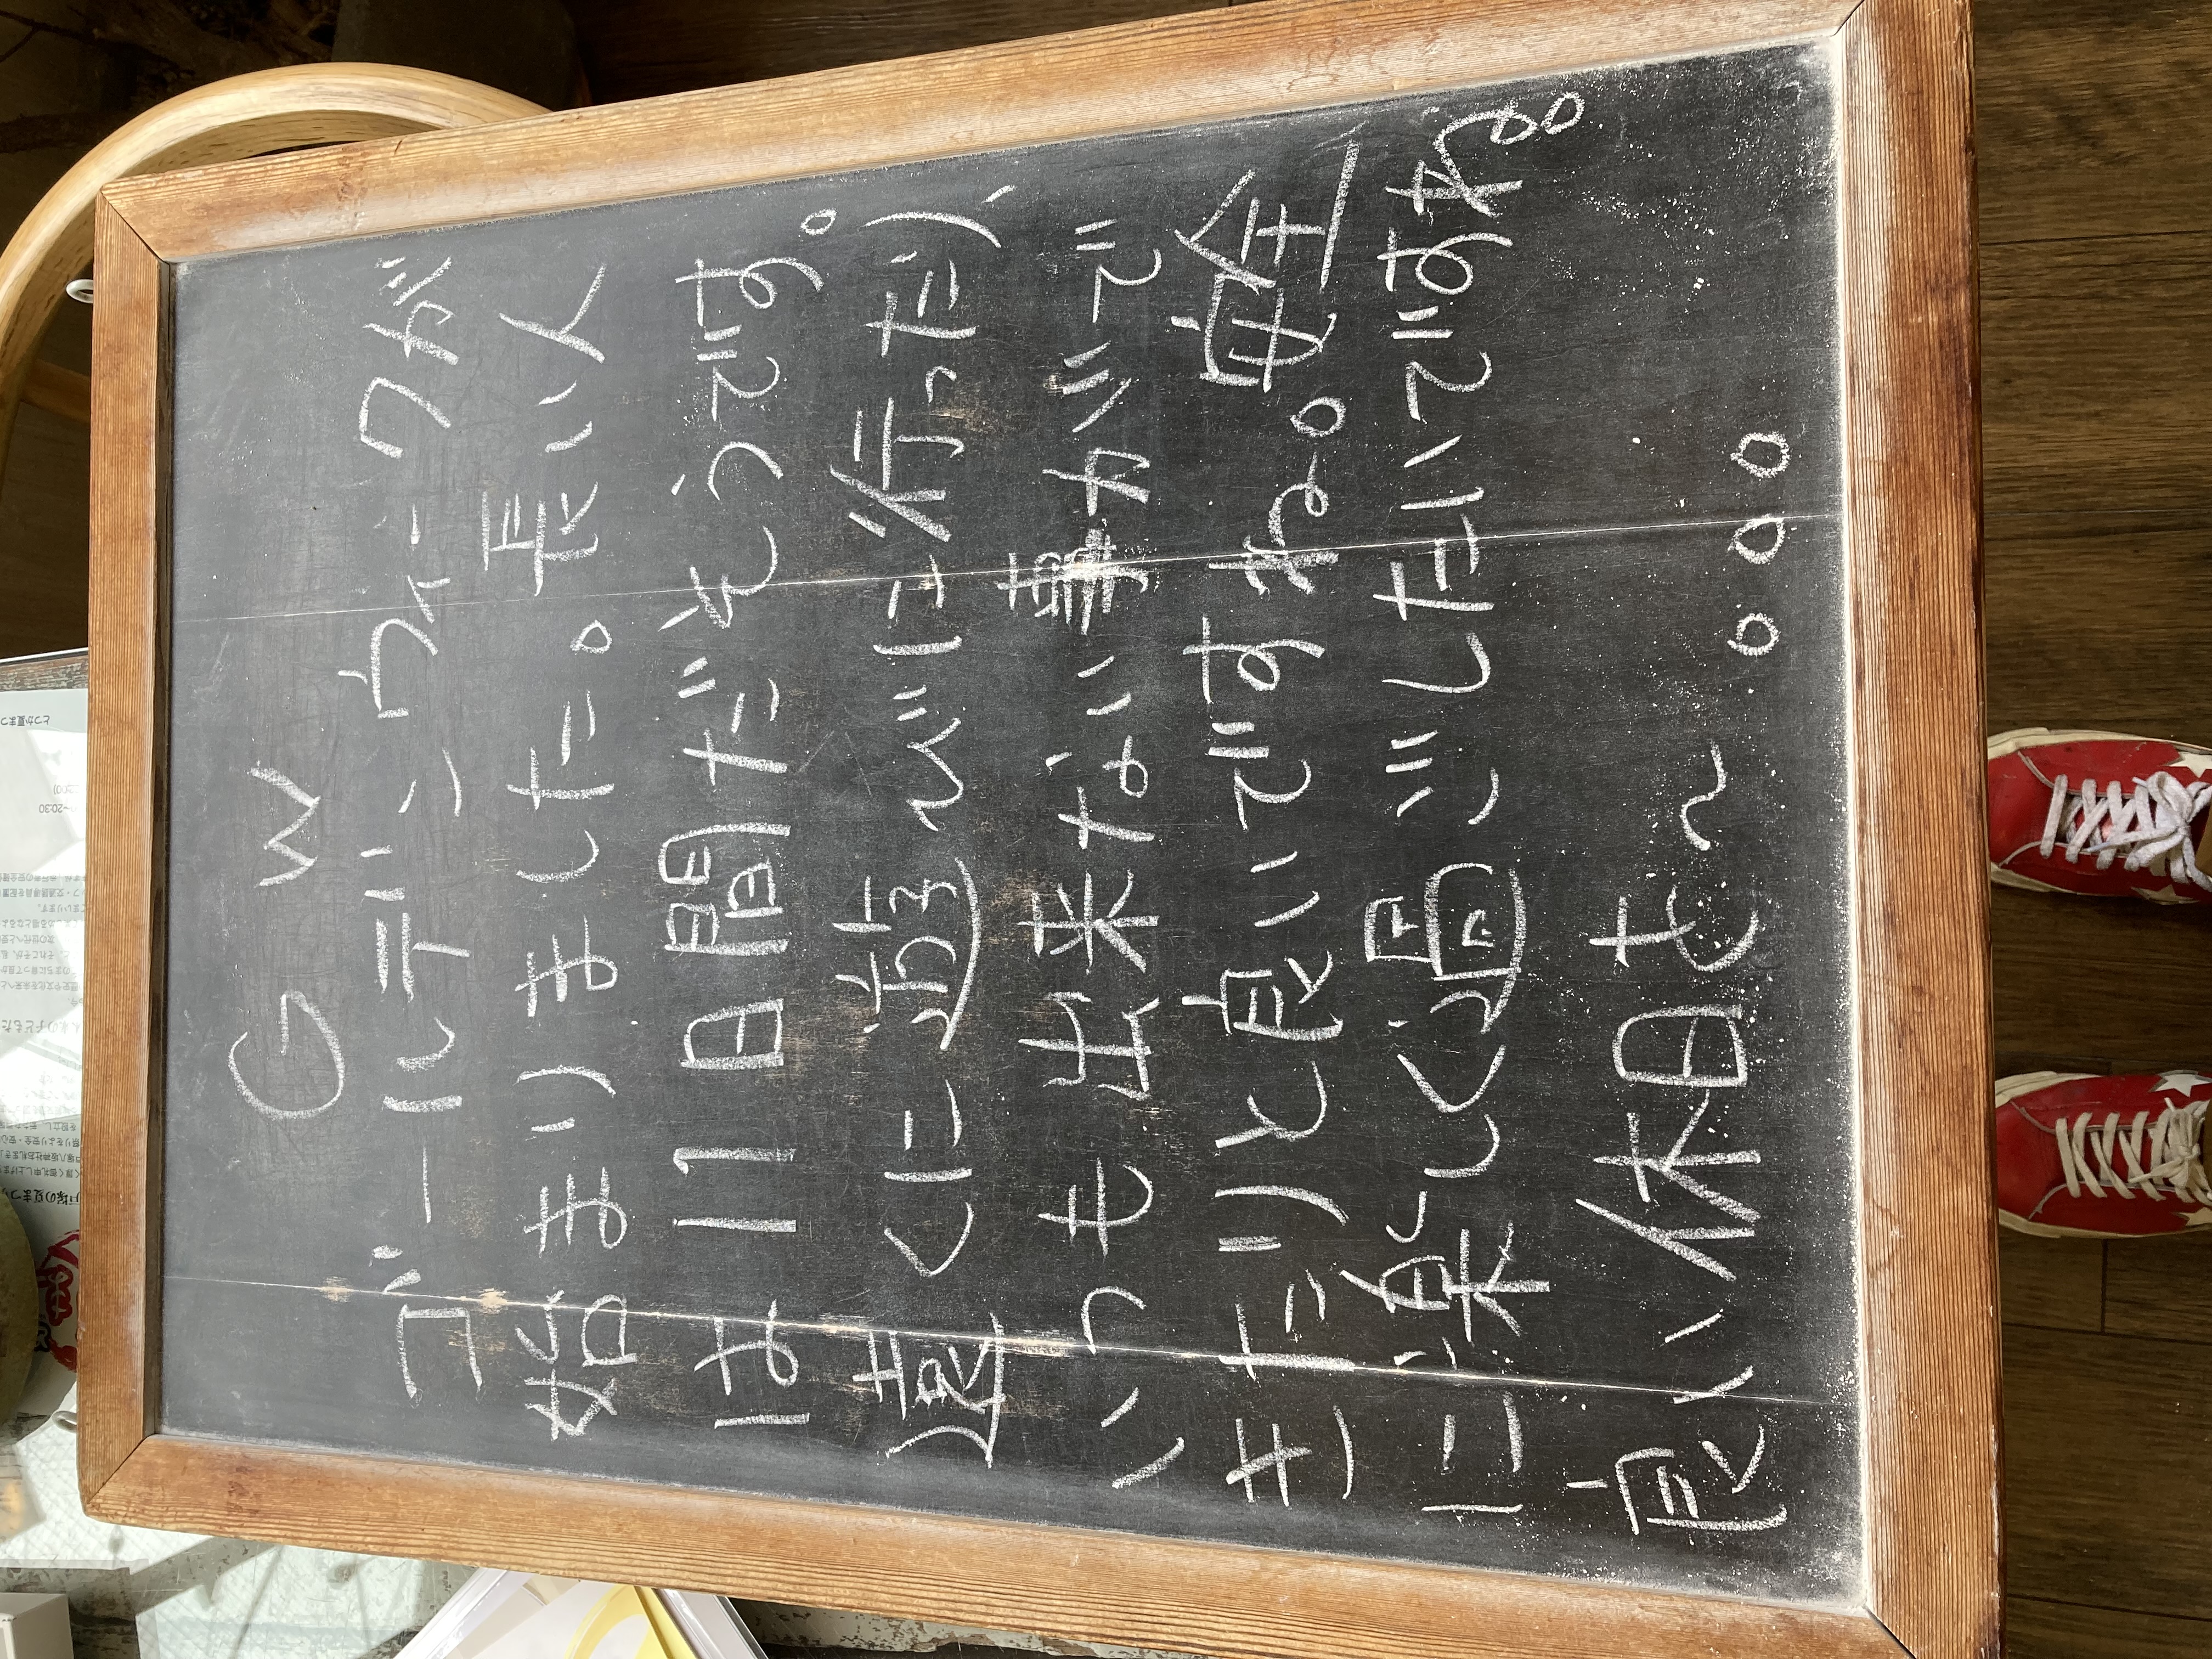 GW
ゴールデンウィークが
始まりました。長い人
は11日間だそうです。
遠くに遊びに行ったり、
いつも出来ない事がで
きたりと良いですね。安全
に楽しく過ごしたいですね。
良い休日を〜。。。
とつか夏まつ